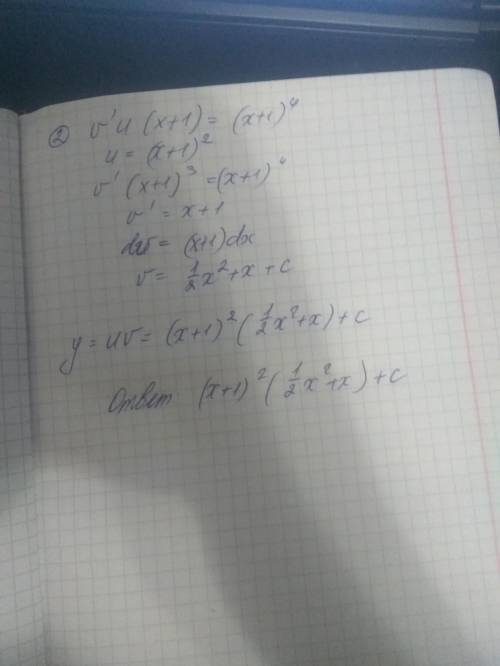 ② v'u (x+1) = (x+1)⁴
u = (x+1)²
v' (x+1)³ = (x+1)⁴
v' = x+1
dv = (x+1)dx
v = 1/2 x² + x + c
y = uv = (x+1)² (1/2 x² + x) + c
Ответ (x+1)² (1/2 x² + x) + c